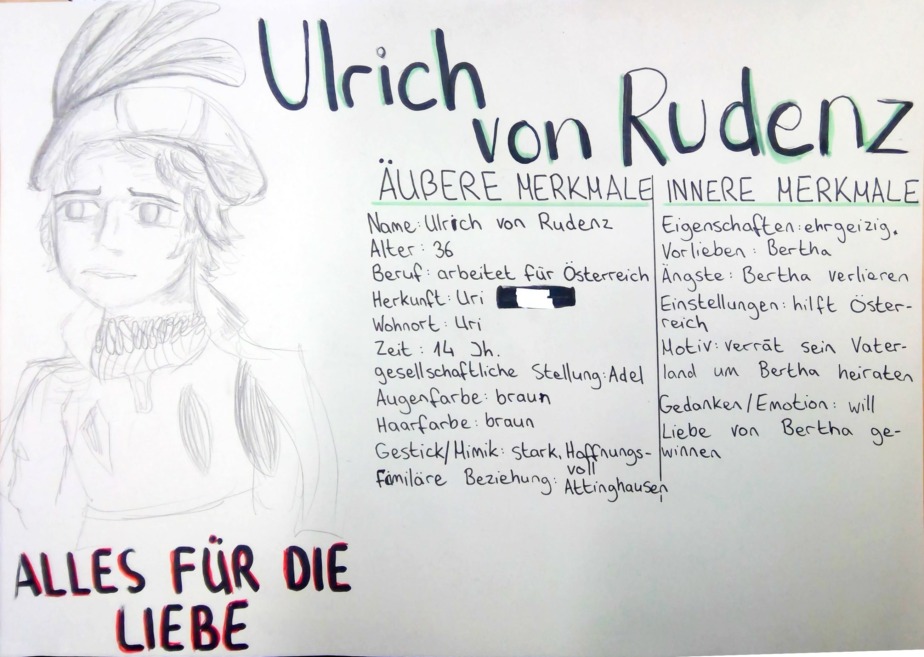 Ulrich
von Rudenz
ÄUßERE MERKMALE
Name: Ulrich von Rudenz
Alter: 36
Beruf: arbeitet für Österreich
Herkunft: Uri
Wohnort: Uri
Zeit: 14 Jh.
gesellschaftliche Stellung: Adel
Augenfarbe: braun
Haarfarbe: braun
Gestick/Mimik: stark, Hoffnungs-
voll
familäre Beziehung: Attinghausen
INNERE MERKMALE
Eigenschaften: ehrgeizig.
Vorlieben: Bertha
Ängste: Bertha verlieren
Einstellungen: hilft Öster-
reich
Motiv: verrät sein Vater-
land um Bertha heiraten
Gedanken/Emotion: will
Liebe von Bertha ge-
winnen
ALLES FÜR DIE
LIEBE